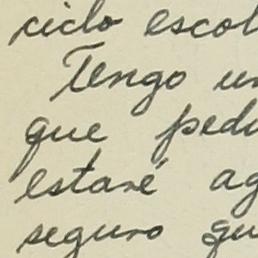 ciclo escol
Tengo un
que pedi
estaré ag
seguro qu